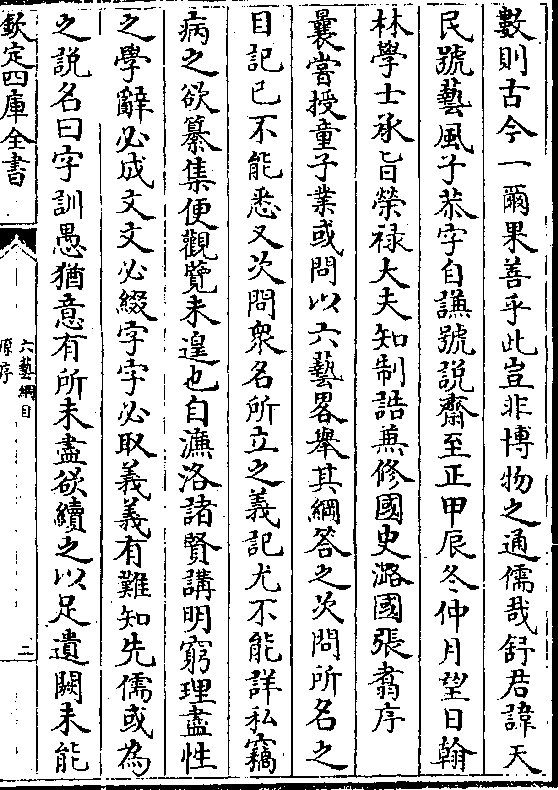 數則古今一爾果善乎此豈非博物之通儒哉舒君諱天
民號藝風子恭字自謙號説齋至正甲辰冬仲月望日翰
林學士承旨榮祿大夫知制誥兼修國史潞國張翥序
曩嘗授童子業或問以六藝畧舉其綱答之次問所名之
目記已不能悉又次問衆名所立之義記尤不能詳私竊
病之欲纂集便觀覽未遑也自濂洛諸賢講明窮理盡性
之學辭必成文文必綴字字必取義義有難知先儒或為
之説名曰字訓愚猶意有所未盡欲續之以足遺闕未能
欽定四庫全書
六藝綱目
原序
二